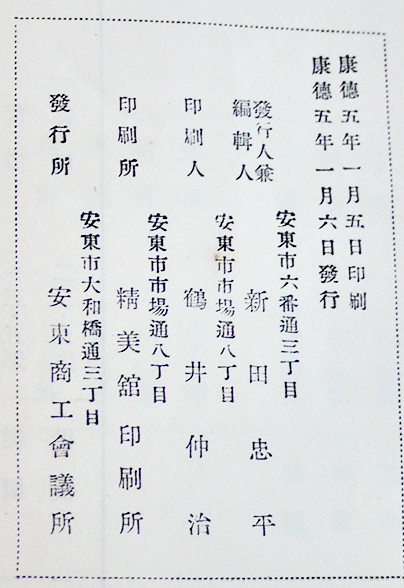 康德五年一月五日印刷
康德五年一月六日發行
安東市六番通三丁目
發行人兼
編輯人
新田忠平
安東市市場通八丁目
印刷人
鶴井仲治
安東市市場通八丁目
印刷所
精美舘印刷所
安東市大和橋通三丁目
發行所
安東商工會議所